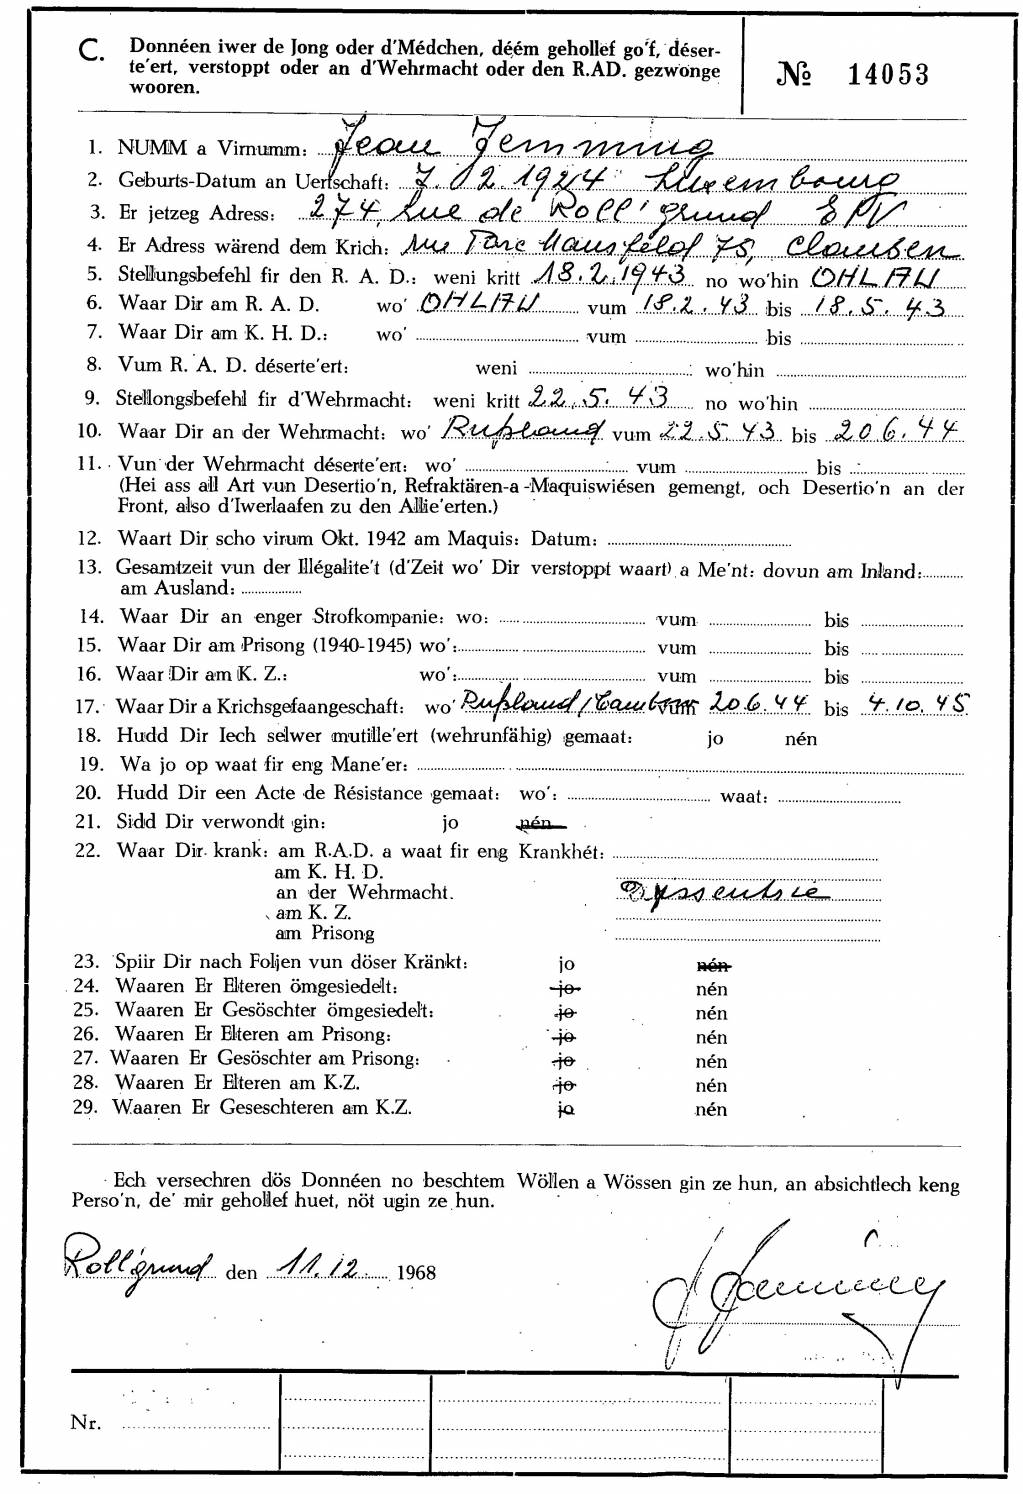 C. Donnéen iwer de Jong oder d'Médchen, déém gehollef go'f, déser-
te'ert, verstoppt oder an d'Wehrmacht oder den R.AD. gezwonge
wooren.
№ 14053
1. NUMM a Virnumm: Jean Jemming
2. Geburts-Datum an Uertschaft: 7.02.1924 Luxembourg
3. Er jetzeg Adress: 274, Rue de Roll'grund
4. Er Adress wärend dem Krich: Rue Mansfeld 75, Clausen
5. Stellungsbefehl fir den R. A. D.: weni kritt 18.2.1943 no wo'hin OHLAU
6. Waar Dir am R. A. D. wo' OHLAU vum 18.2.43 bis 18.5.43
7. Waar Dir am K. H. D.: wo' vum bis
8. Vum R. A. D. déserte'ert: weni wo'hin
9. Stellongsbefehl fir d'Wehrmacht: weni kritt 22.5.43 no wo'hin
10. Waar Dir an der Wehrmacht: wo' Rußland vum 22.5.43 bis 20.6.44
11. Vun der Wehrmacht déserte'ert: wo' vum bis
(Hei ass all Art vun Desertio'n, Refraktären-a-Maquiswiésen gemengt, och Desertio'n an der
Front, also d'Iwerlaafen zu den Allie'erten.)
12. Waart Dir scho virum Okt. 1942 am Maquis: Datum:
13. Gesamtzeit vun der Illégalite't (d'Zeit wo' Dir verstoppt waart) a Me'nt: dovun am Inland:
am Ausland:
14. Waar Dir an enger Strofkompanie: wo: vum bis
15. Waar Dir am Prisong (1940-1945) wo': vum bis
16. Waar Dir am K. Z.: wo': vum bis
17. Waar Dir a Krichsgefaangeschaft: wo' Rußland/Tambow vum 20.6.44 bis 4.10.45
18. Hudd Dir Iech selwer mutille'ert (wehrunfähig) gemaat: jo nén
19. Wa jo op waat fir eng Mane'er:
20. Hudd Dir een Acte de Résistance gemaat: wo': waat:
21. Sidd Dir verwondt gin: jo nén
22. Waar Dir krank: am R.A.D. a waat fir eng Krankhét:
am K. H. D.
an der Wehrmacht. Dyssentrie
am K. Z.
am Prisong
23. Spiir Dir nach Foljen vun döser Kränkt: jo nén
24. Waaren Er Elteren ömgesiedelt: jo nén
25. Waaren Er Gesöschter ömgesiedelt: jo nén
26. Waaren Er Elteren am Prisong: jo nén
27. Waaren Er Gesöschter am Prisong: jo nén
28. Waaren Er Elteren am K.Z. jo nén
29. Waaren Er Geseschteren am K.Z. jo nén
Ech versechren dös Donnéen no beschtem Wöllen a Wössen gin ze hun, an absichtlech keng
Perso'n, de' mir gehollef huet, nöt ugin ze hun.
Roll'grund den 11.12. 1968
Nr.